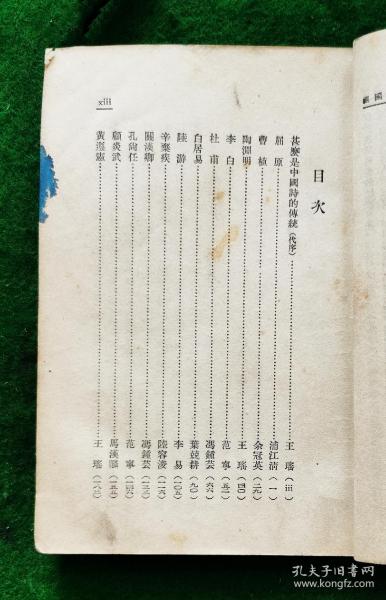 目次
甚麼是中國詩的傳統(代序)……王瑤(iii)
屈原……浦江清(一)
曹植……余冠英(二九)
陶淵明……王瑤(四〇)
李白……范寧(五一)
杜甫……馮鍾芸(六六)
白居易……葉兢耕(九〇)
陸游……李易(一〇五)
辛棄疾……陸容淩(一一六)
關漢卿……馮鍾芸(一三三)
孔尚任……范寧(一四六)
顧炎武……馬漢麟(一五五)
黃遵憲……王瑤(一八〇)
xiii
國
孔夫子旧书网